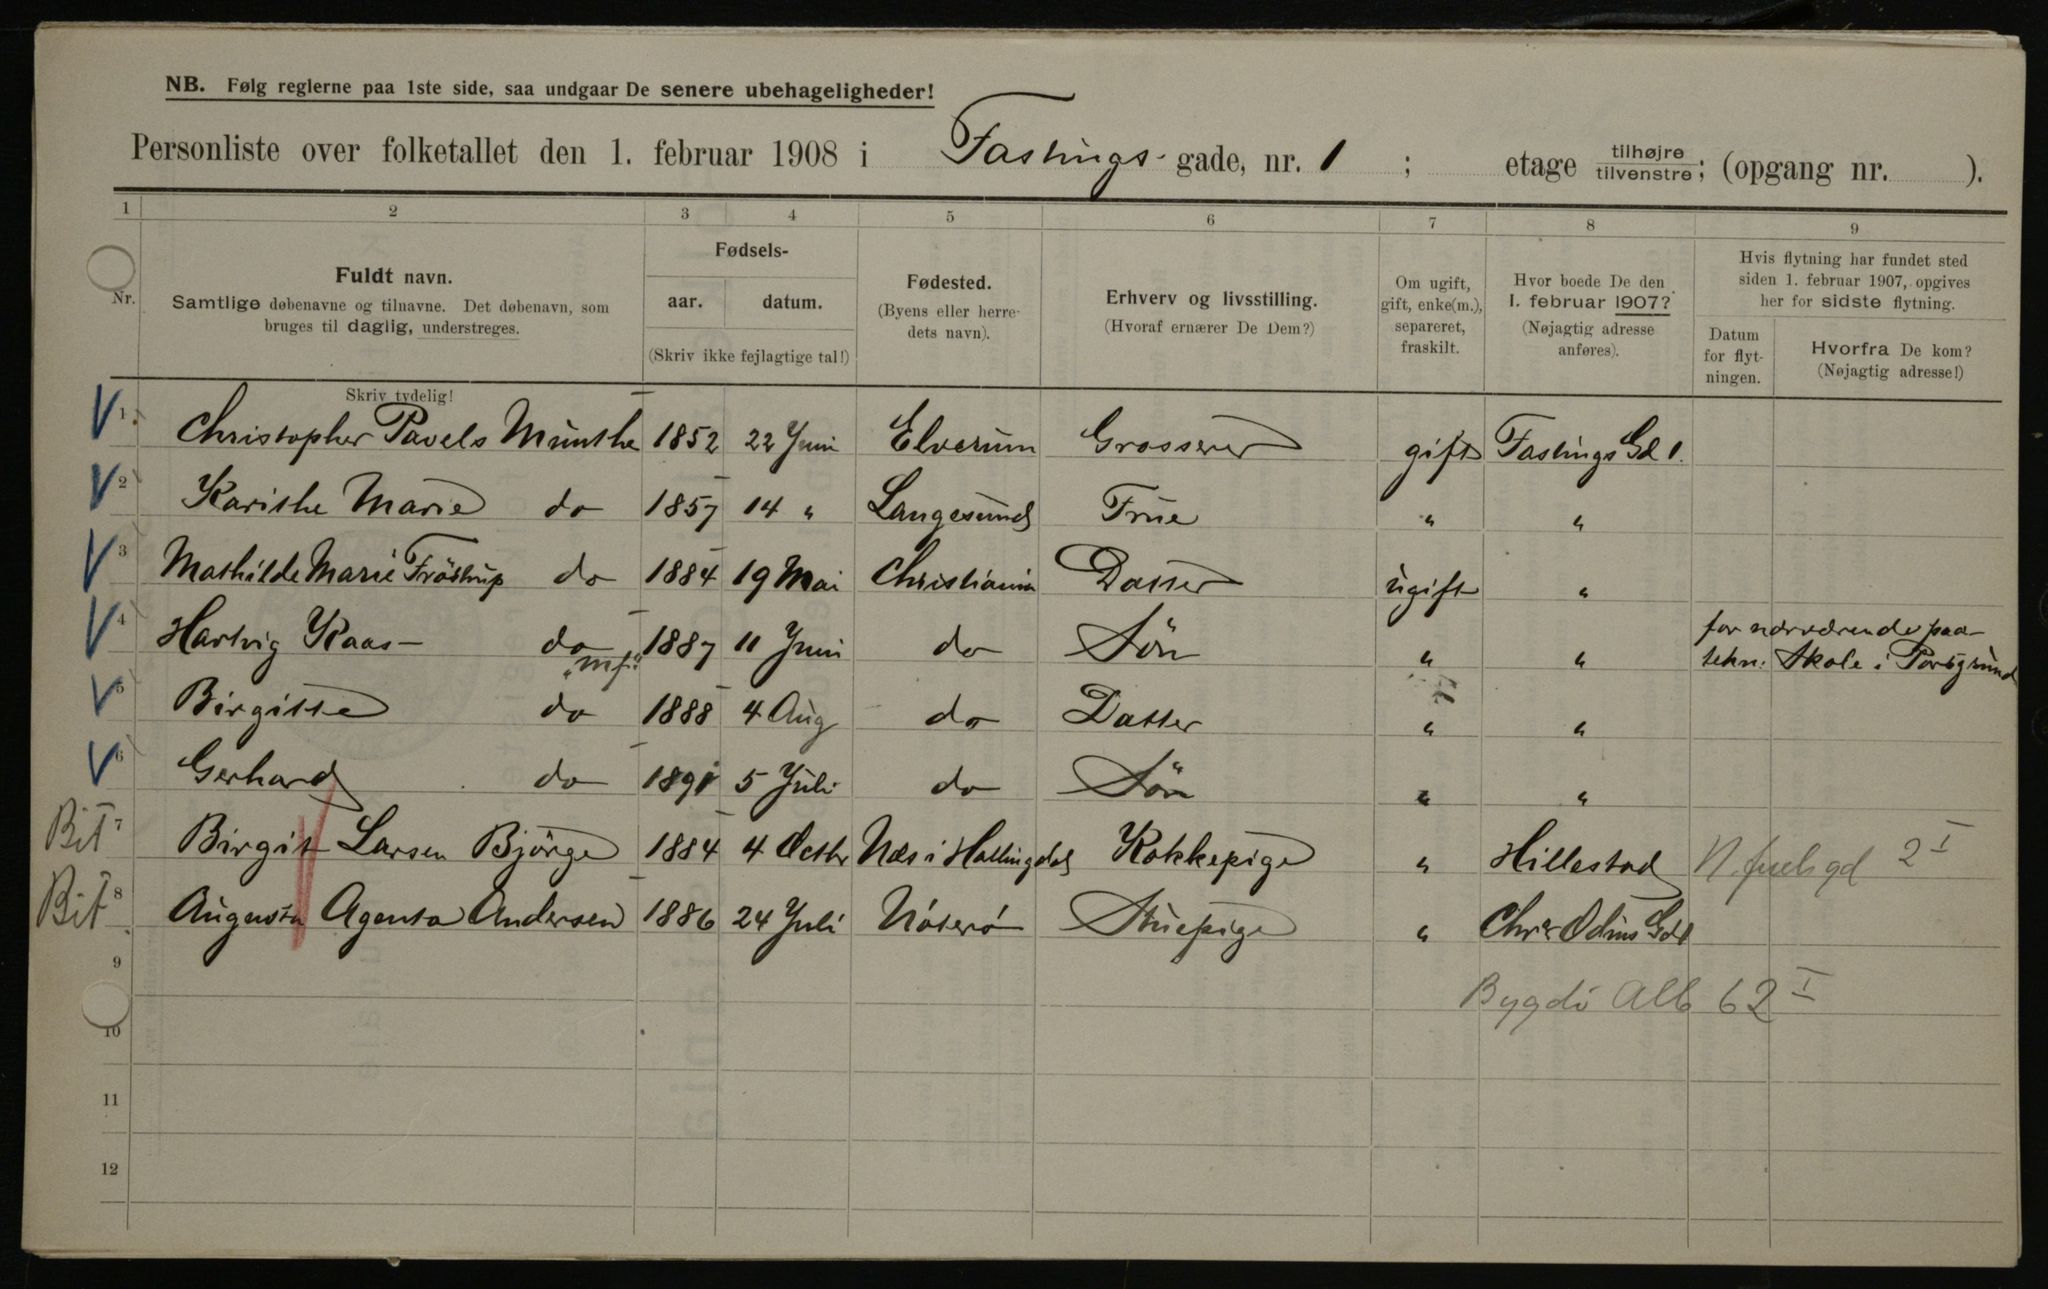 NB. Følg reglerne paa 1ste side, saa undgaar De senere ubehageligheder!
Personliste over folketallet den 1. februar 1908 i Fastings gade, nr. 1 ; etage tilhøjre tilvenstre; (opgang nr. ).
1 2 3 4 5 6 7 8 9
Nr.
Fuldt navn.
Samtlige døbenavne og tilnavne. Det døbenavn, som
bruges til daglig, understreges.
Fødsels-
aar. datum.
(Skriv ikke fejlagtige tal!)
Fødested.
(Byens eller herre-
dets navn).
Erhverv og livsstilling.
(Hvoraf ernærer De Dem?)
Om ugift,
gift, enke(m.),
separeret,
fraskilt.
Hvor boede De den
1. februar 1907?
(Nøjagtig adresse
anføres).
Hvis flytning har fundet sted
siden 1. februar 1907, opgives
her for sidste flytning.
Datum
for flyt-
ningen.
Hvorfra De kom?
(Nøjagtig adresse!)
Skriv tydelig!
V 1. Christopher Pavels Munthe 1852 22 Juni Elverum Grosserer gift Fastings Gd 1.
V 2 Karithe Marie do 1857 14 " Langesund Frue " "
V 3 Mathilde Marie Fröstrup do 1884 19 Mai Christiania Datter ugift "
V 4 Hartvig Kaas do 1887 11 Juni do Sön " " for nærværende paa
tekn: Skole i Porsgrund
"mf."
V 5 Birgitte do 1888 4 Aug do Datter " "
V 6 Gerhard do 1891 5 Juli do Sön " "
Bit 7 Birgit Larsen Bjørge 1884 4 Octbr Næs i Hallingdal Kokkepige " Hillestad 2 I
Bit 8 Augusta Agenta Andersen 1886 24 Juli Nøterø Stuepige " Chr Odins Gd 1
9
Bygdö Allé 62 I
10
11
12